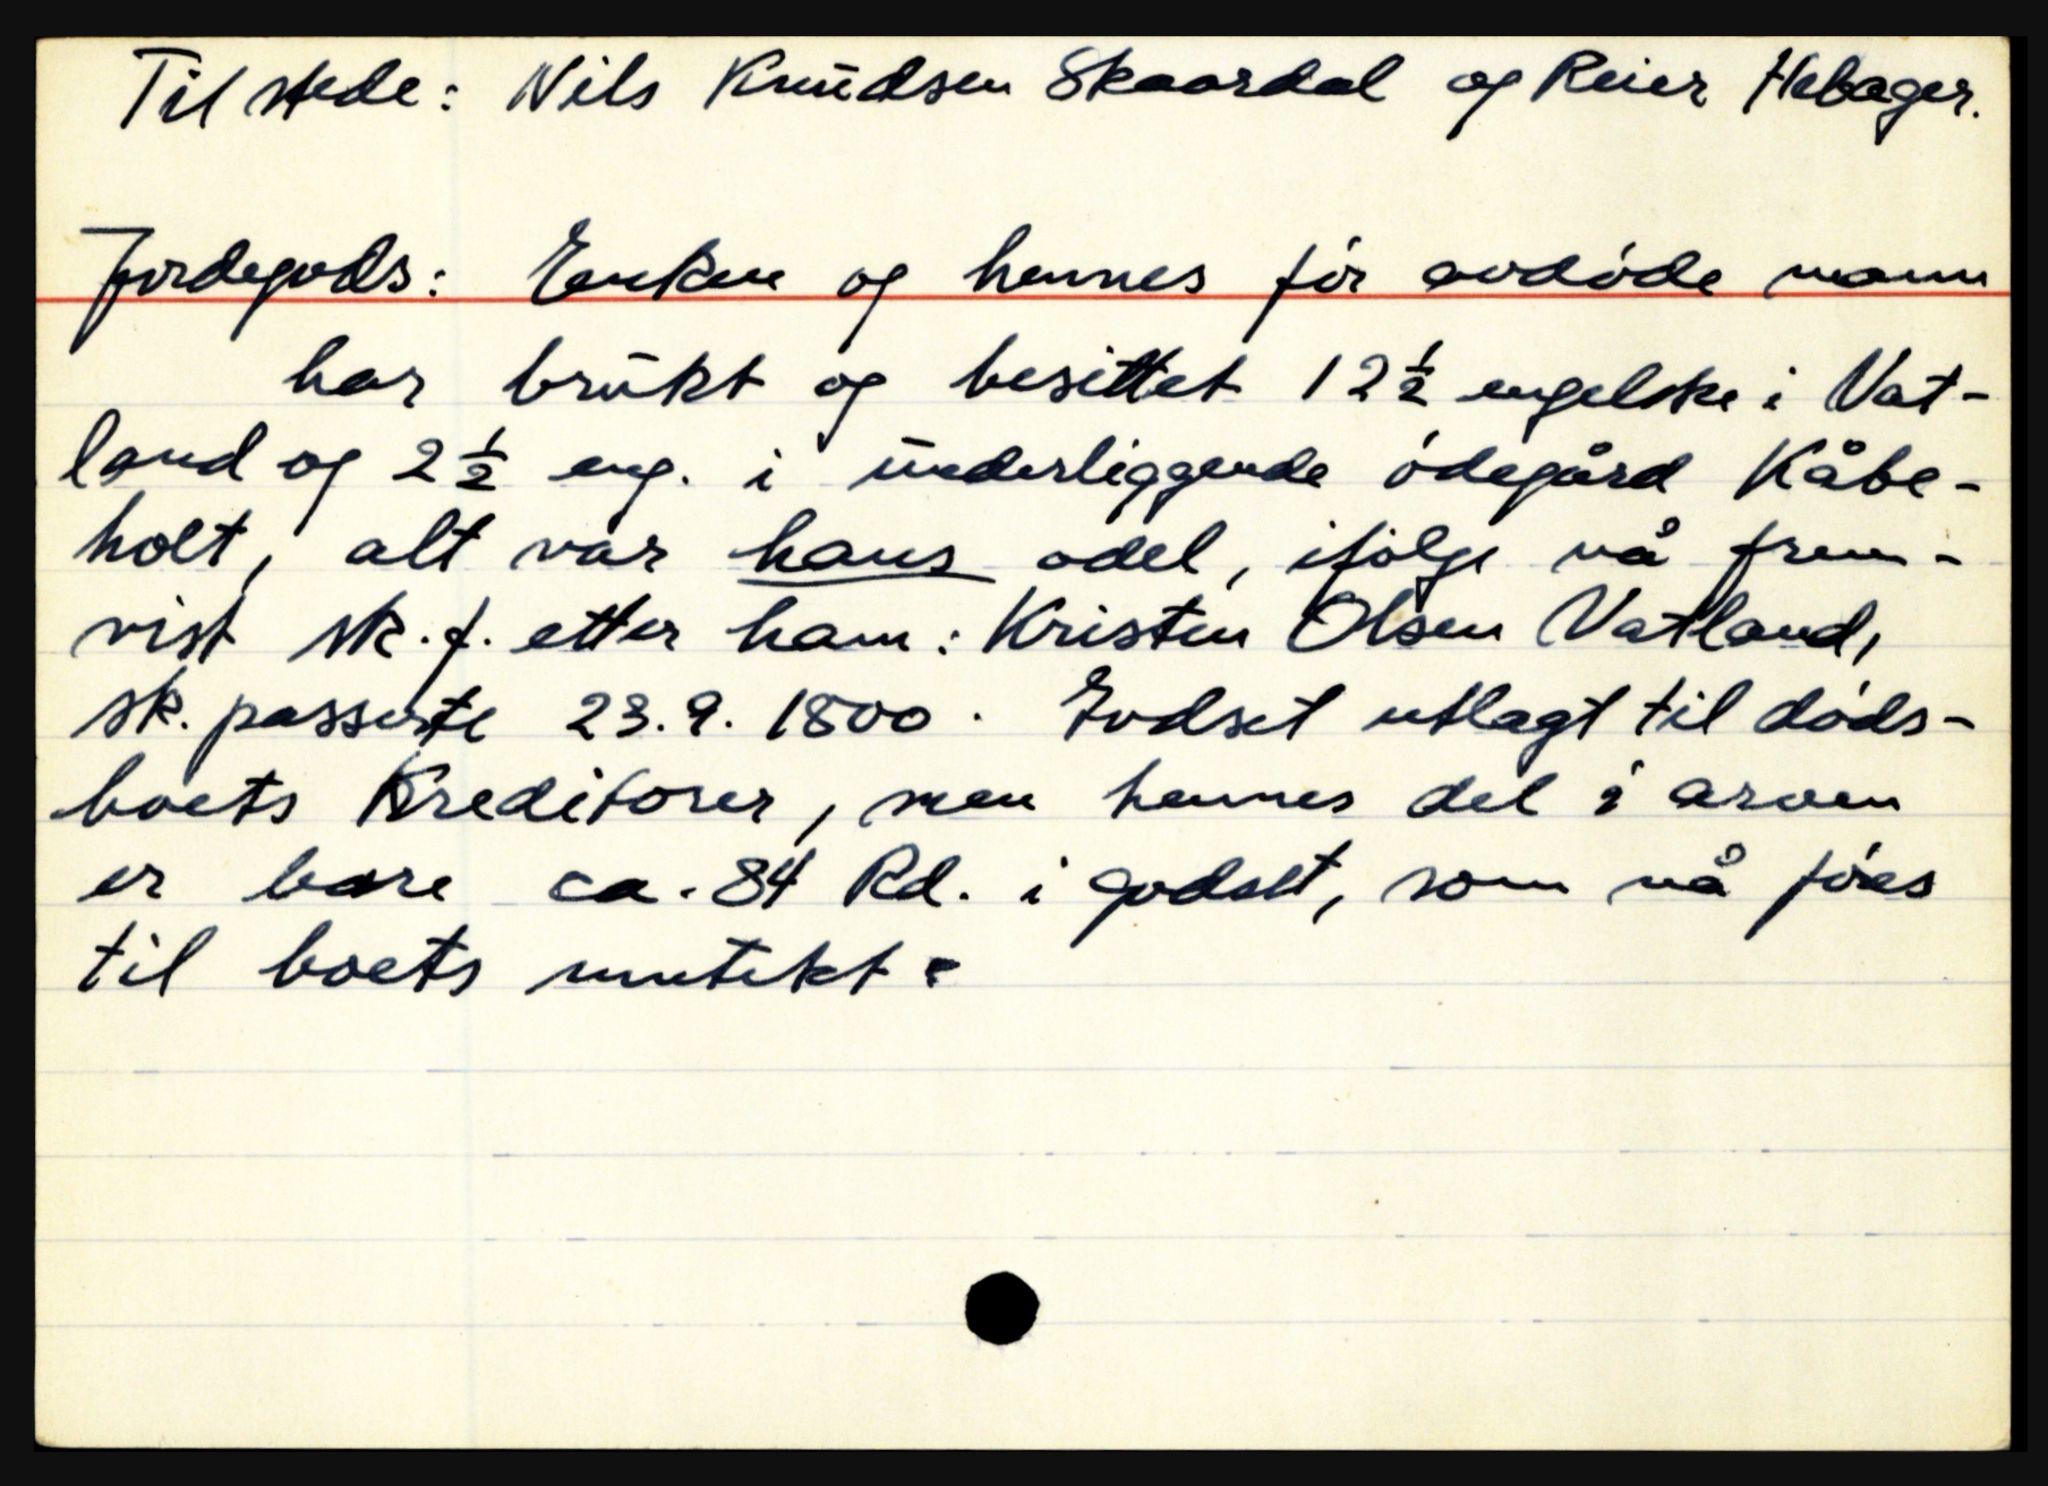 Til stede: Nils Knudsen Skaardal og Reier Hebager.
Jordegods: Enken og hennes før avdøde mann
har brukt og besittet 12½ engelske i Vat-
land og 2½ eng. i underliggende ødegård Kåbe-
holt, alt var hans odel, ifølge nå frem-
vist sk.f. etter ham: Kristen Olsen Vatland,
sk. passerte 23.9.1800. Godset utlagt til døds-
boets Kreditorer, men hennes del i arven
er bare ca. 84 Rd. i godset, som nå føres
til boets inntekt.